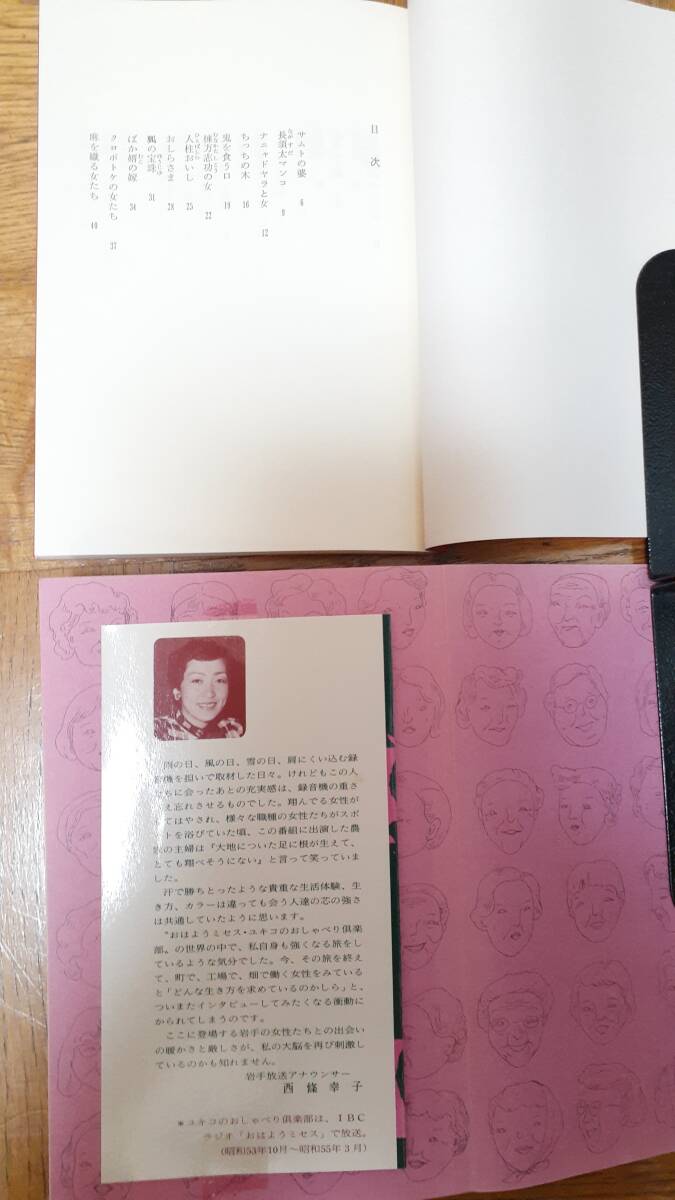 目次
サムトの婆 6
長須太マンコ 9
ナニャドヤラと女 12
ちっちの木 16
鬼を食う口 19
棟方志功の女 22
人柱おいし 25
おしらさま 28
瓢の宝珠 31
ばか婿の嫁 34
クロボトケの女たち 37
麻を織る女たち 40
雨の日、風の日、雪の日、肩にくい込む録
音機を担いで取材した日々。けれどもこの人
たちに会ったあとの充実感は、録音機の重さ
さえ忘れさせるものでした。翔んでる女性が
もてはやされ、様々な職種の女性たちがスポ
ットを浴びていた頃、この番組に出演した農
家の主婦は『大地についた足に根が生えて、
とても翔べそうにない』と言って笑っていま
した。
汗で勝ちとったような貴重な生活体験、生
き方、カラーは違っても会う人達の芯の強さ
は共通していたように思います。
〝おはようミセス・ユキコのおしゃべり倶楽
部〟の世界の中で、私自身も強くなる旅をし
ているような気分でした。今、その旅を終え
て、町で、工場で、畑で働く女性をみている
と「どんな生き方を求めているのかしら」と、
ついまたインタビューしてみたくなる衝動に
かられてしまうのです。
ここに登場する岩手の女性たちとの出会い
の暖かさと厳しさが、私の大脳を再び刺激し
ているのかも知れません。
岩手放送アナウンサー
西條幸子
＊ユキコのおしゃべり倶楽部は、IBC
ラジオ「おはようミセス」で放送。
（昭和53年10月～昭和55年3月）